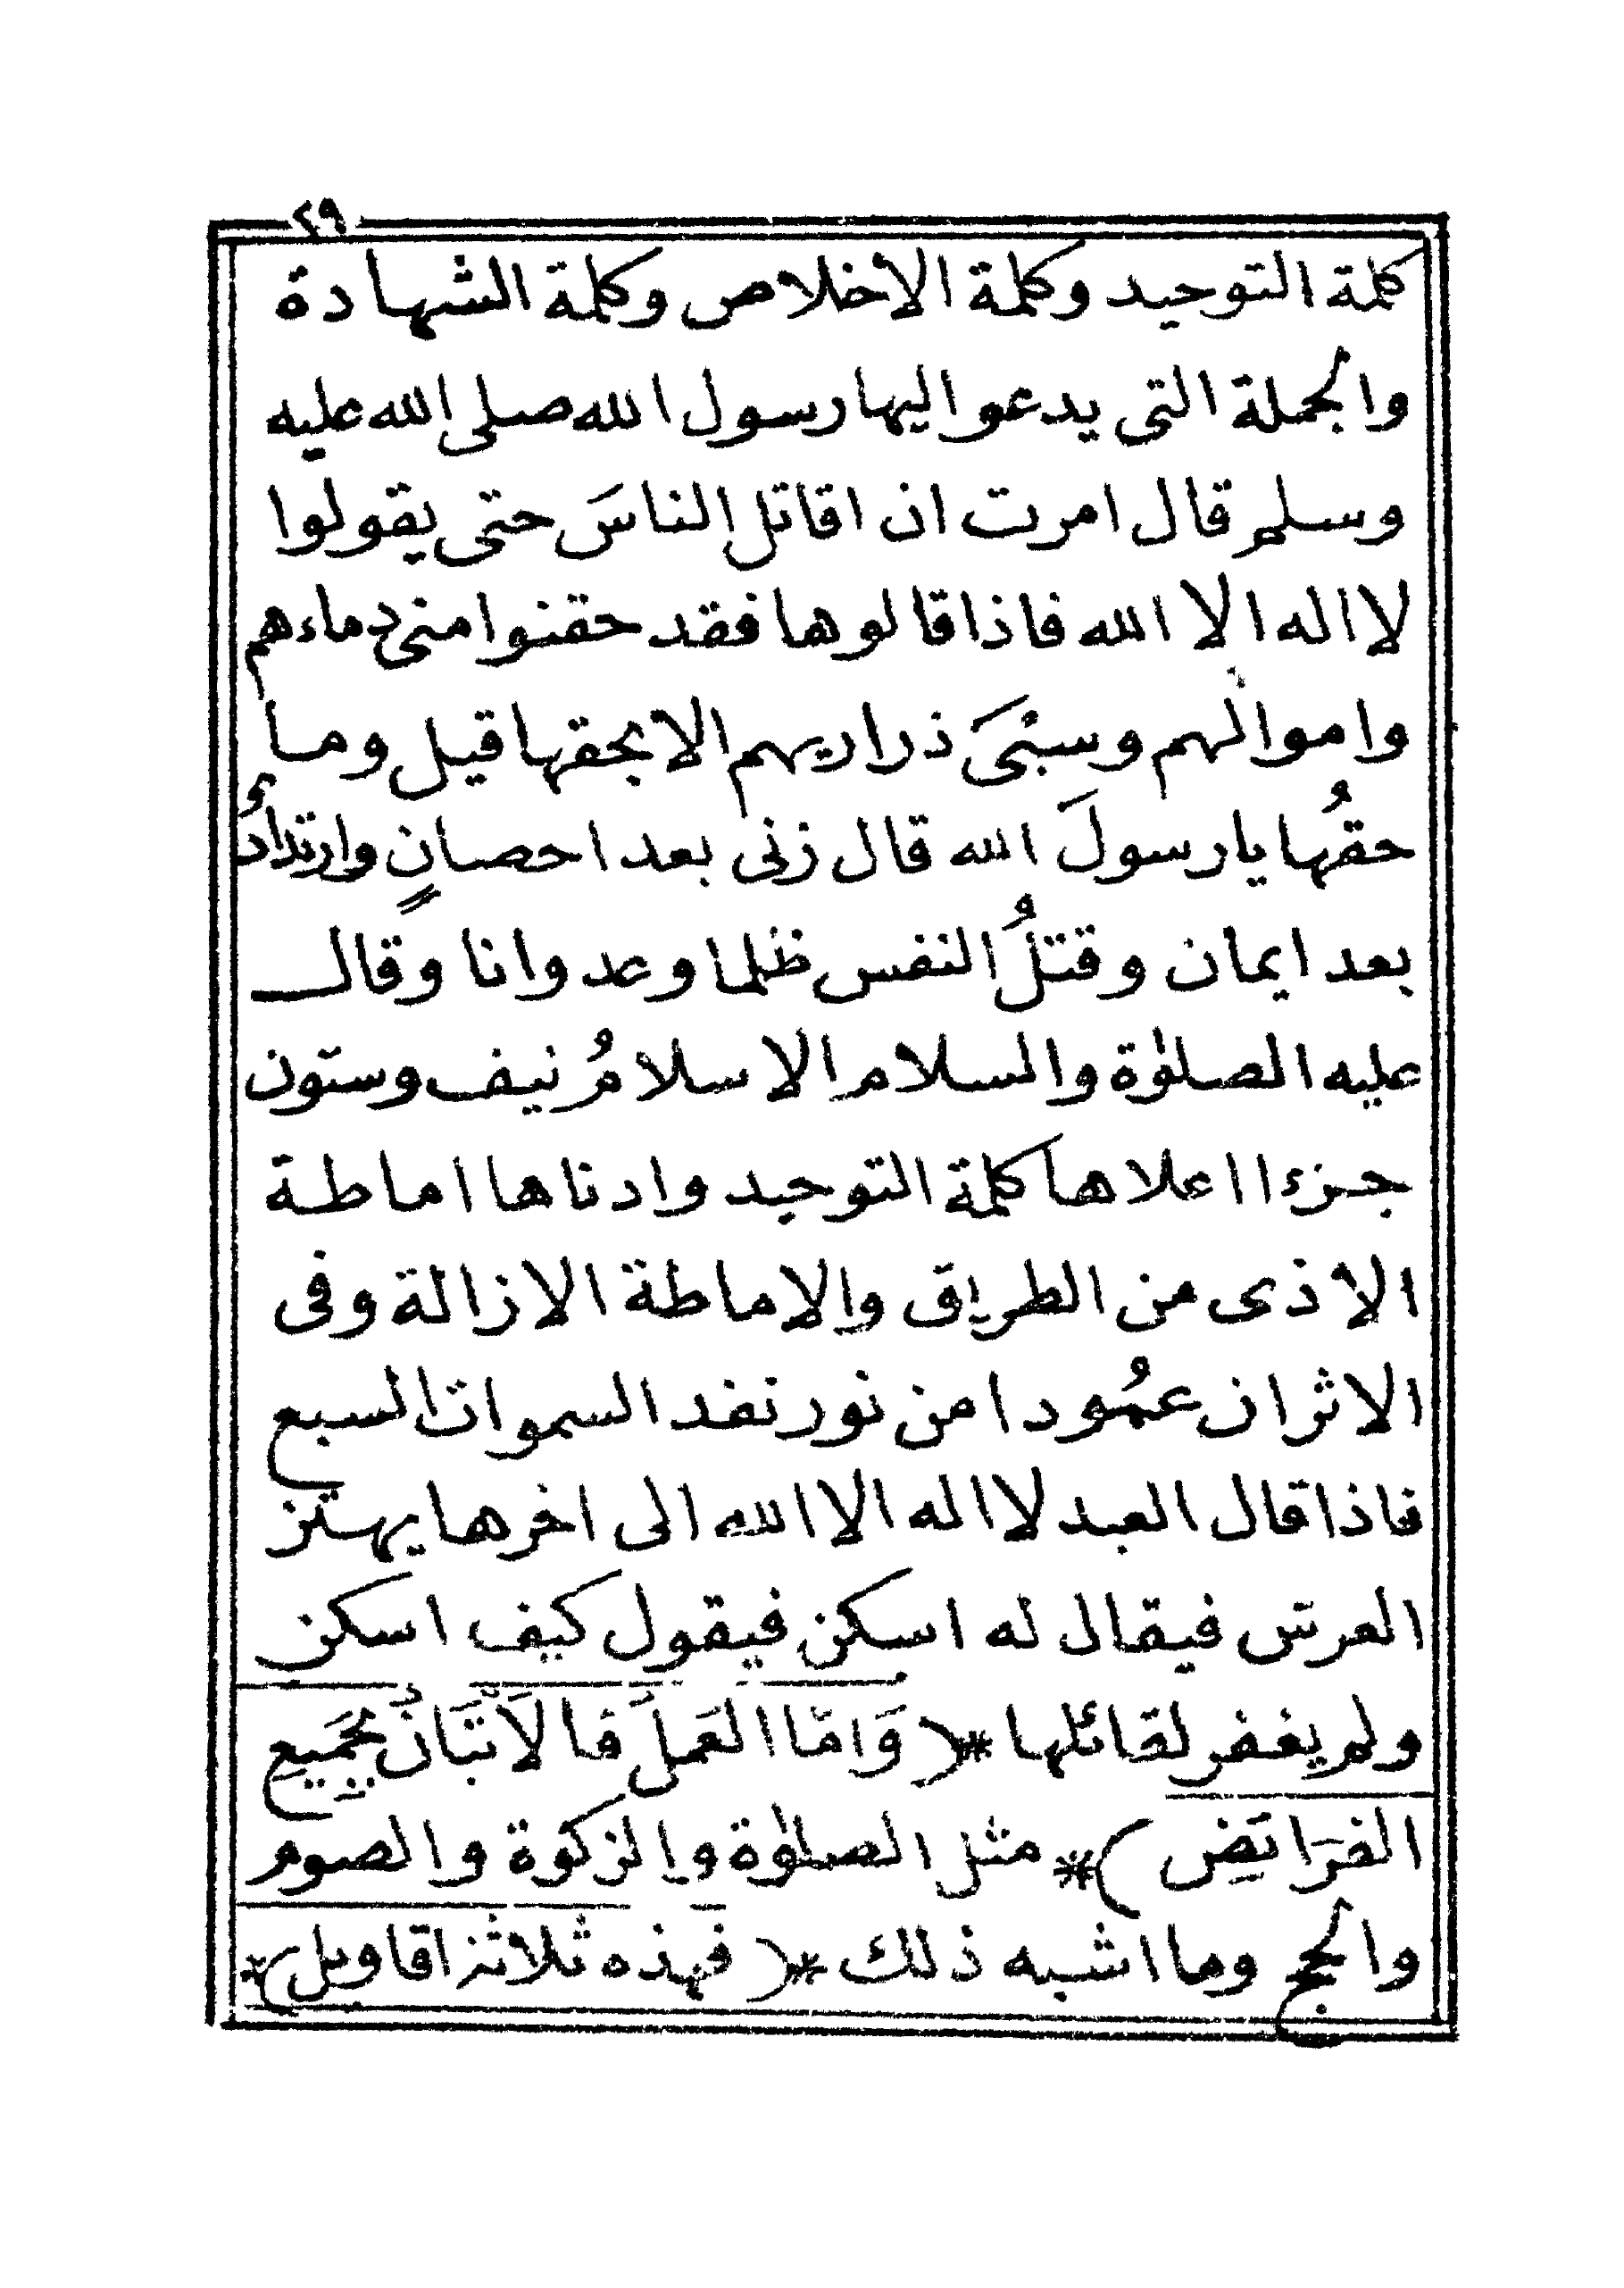 ٤٩
كلمة التوحيد وكلمة الاخلاص وكلمة الشهادة
والجملة التى يدعو اليها رسول الله صلى الله عليه
وسلم قال امرت ان اقاتل الناسَ حتى يقولوا
لا اله الا الله فاذا قالوها فقد حقنوا منى دماءهم
واموالهم وسبْىَ ذراريهم الا بحقها قيل وما
حقُها يا رسولَ الله قال زنى بعد احصانٍ وارتدادٌ
بعد ايمان وقتلُ النفس ظلما وعدوانا وقال
عليه الصلوٰة والسلام الاسلامُ نيف وستون
جزءا اعلاها كلمة التوحيد وادناها اماطة
الاذى من الطريق والاماطة الازالة وفى
الاثر ان عمُودا من نور نفد السموات السبع
فاذا قال العبد لا اله الا الله الى اخرها يهتز
العرش فيقال له اسكن فيقول كيف اسكن
ولم يغفر لقائلها *( وَامّا العَملُ فالاَتْيَانُ بِجَمَيعِ
الفَرَائضِ )* مثل الصلوٰة والزكوة والصوم
والحج وما اشبه ذلك *( فهذه ثلاثة اقاويل )*